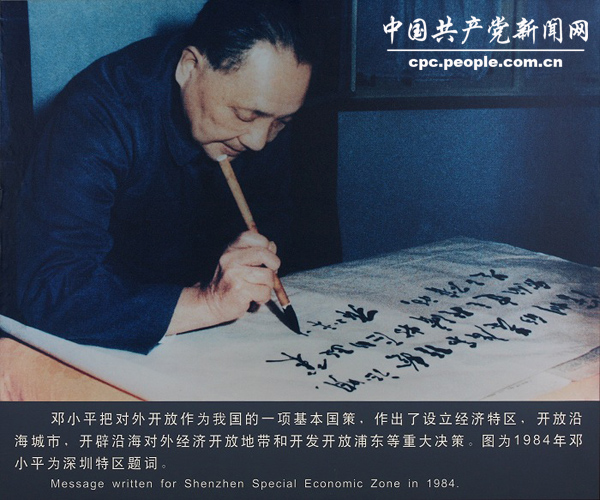 中国共产党新闻网
cpc.people.com.cn
邓小平把对外开放作为我国的一项基本国策，作出了设立经济特区，开放沿
海城市，开辟沿海对外经济开放地带和开发开放浦东等重大决策。图为1984年邓
小平为深圳特区题词。
Message written for Shenzhen Special Economic Zone in 1984.